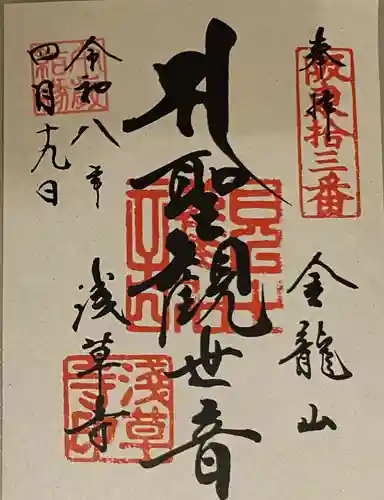 奉拝
坂東拾三番
金龍山
聖観世音
浅草寺
令和八年
四月十九日